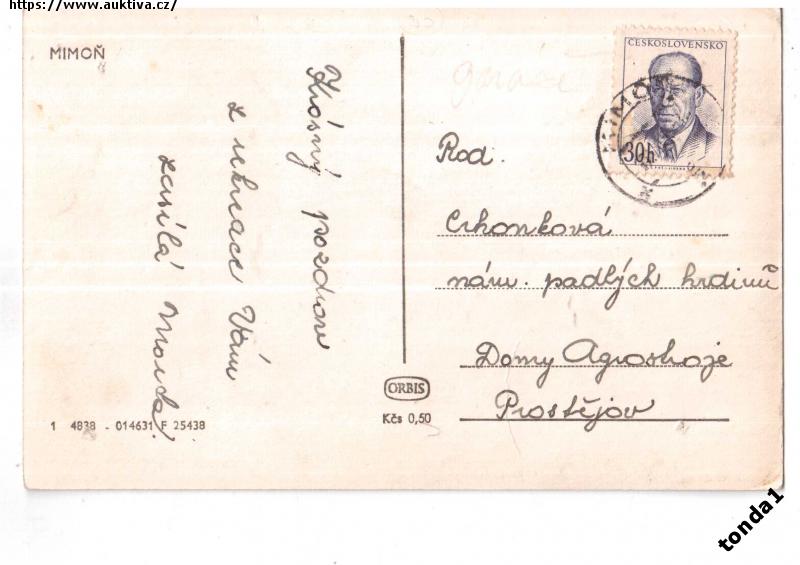 https://www.auktiva.cz/
MIMOŇ
Krásný pozdrav
z
Vám
zasílá
ČESKOSLOVENSKO
30h
MIMOŇ
Rod.
Crhonková
nám. padlých hrdinů
Domy Agrostroje
Prostějov
ORBIS
Kčs 0,50
1 4838 - 014631 F 25438
tonda1